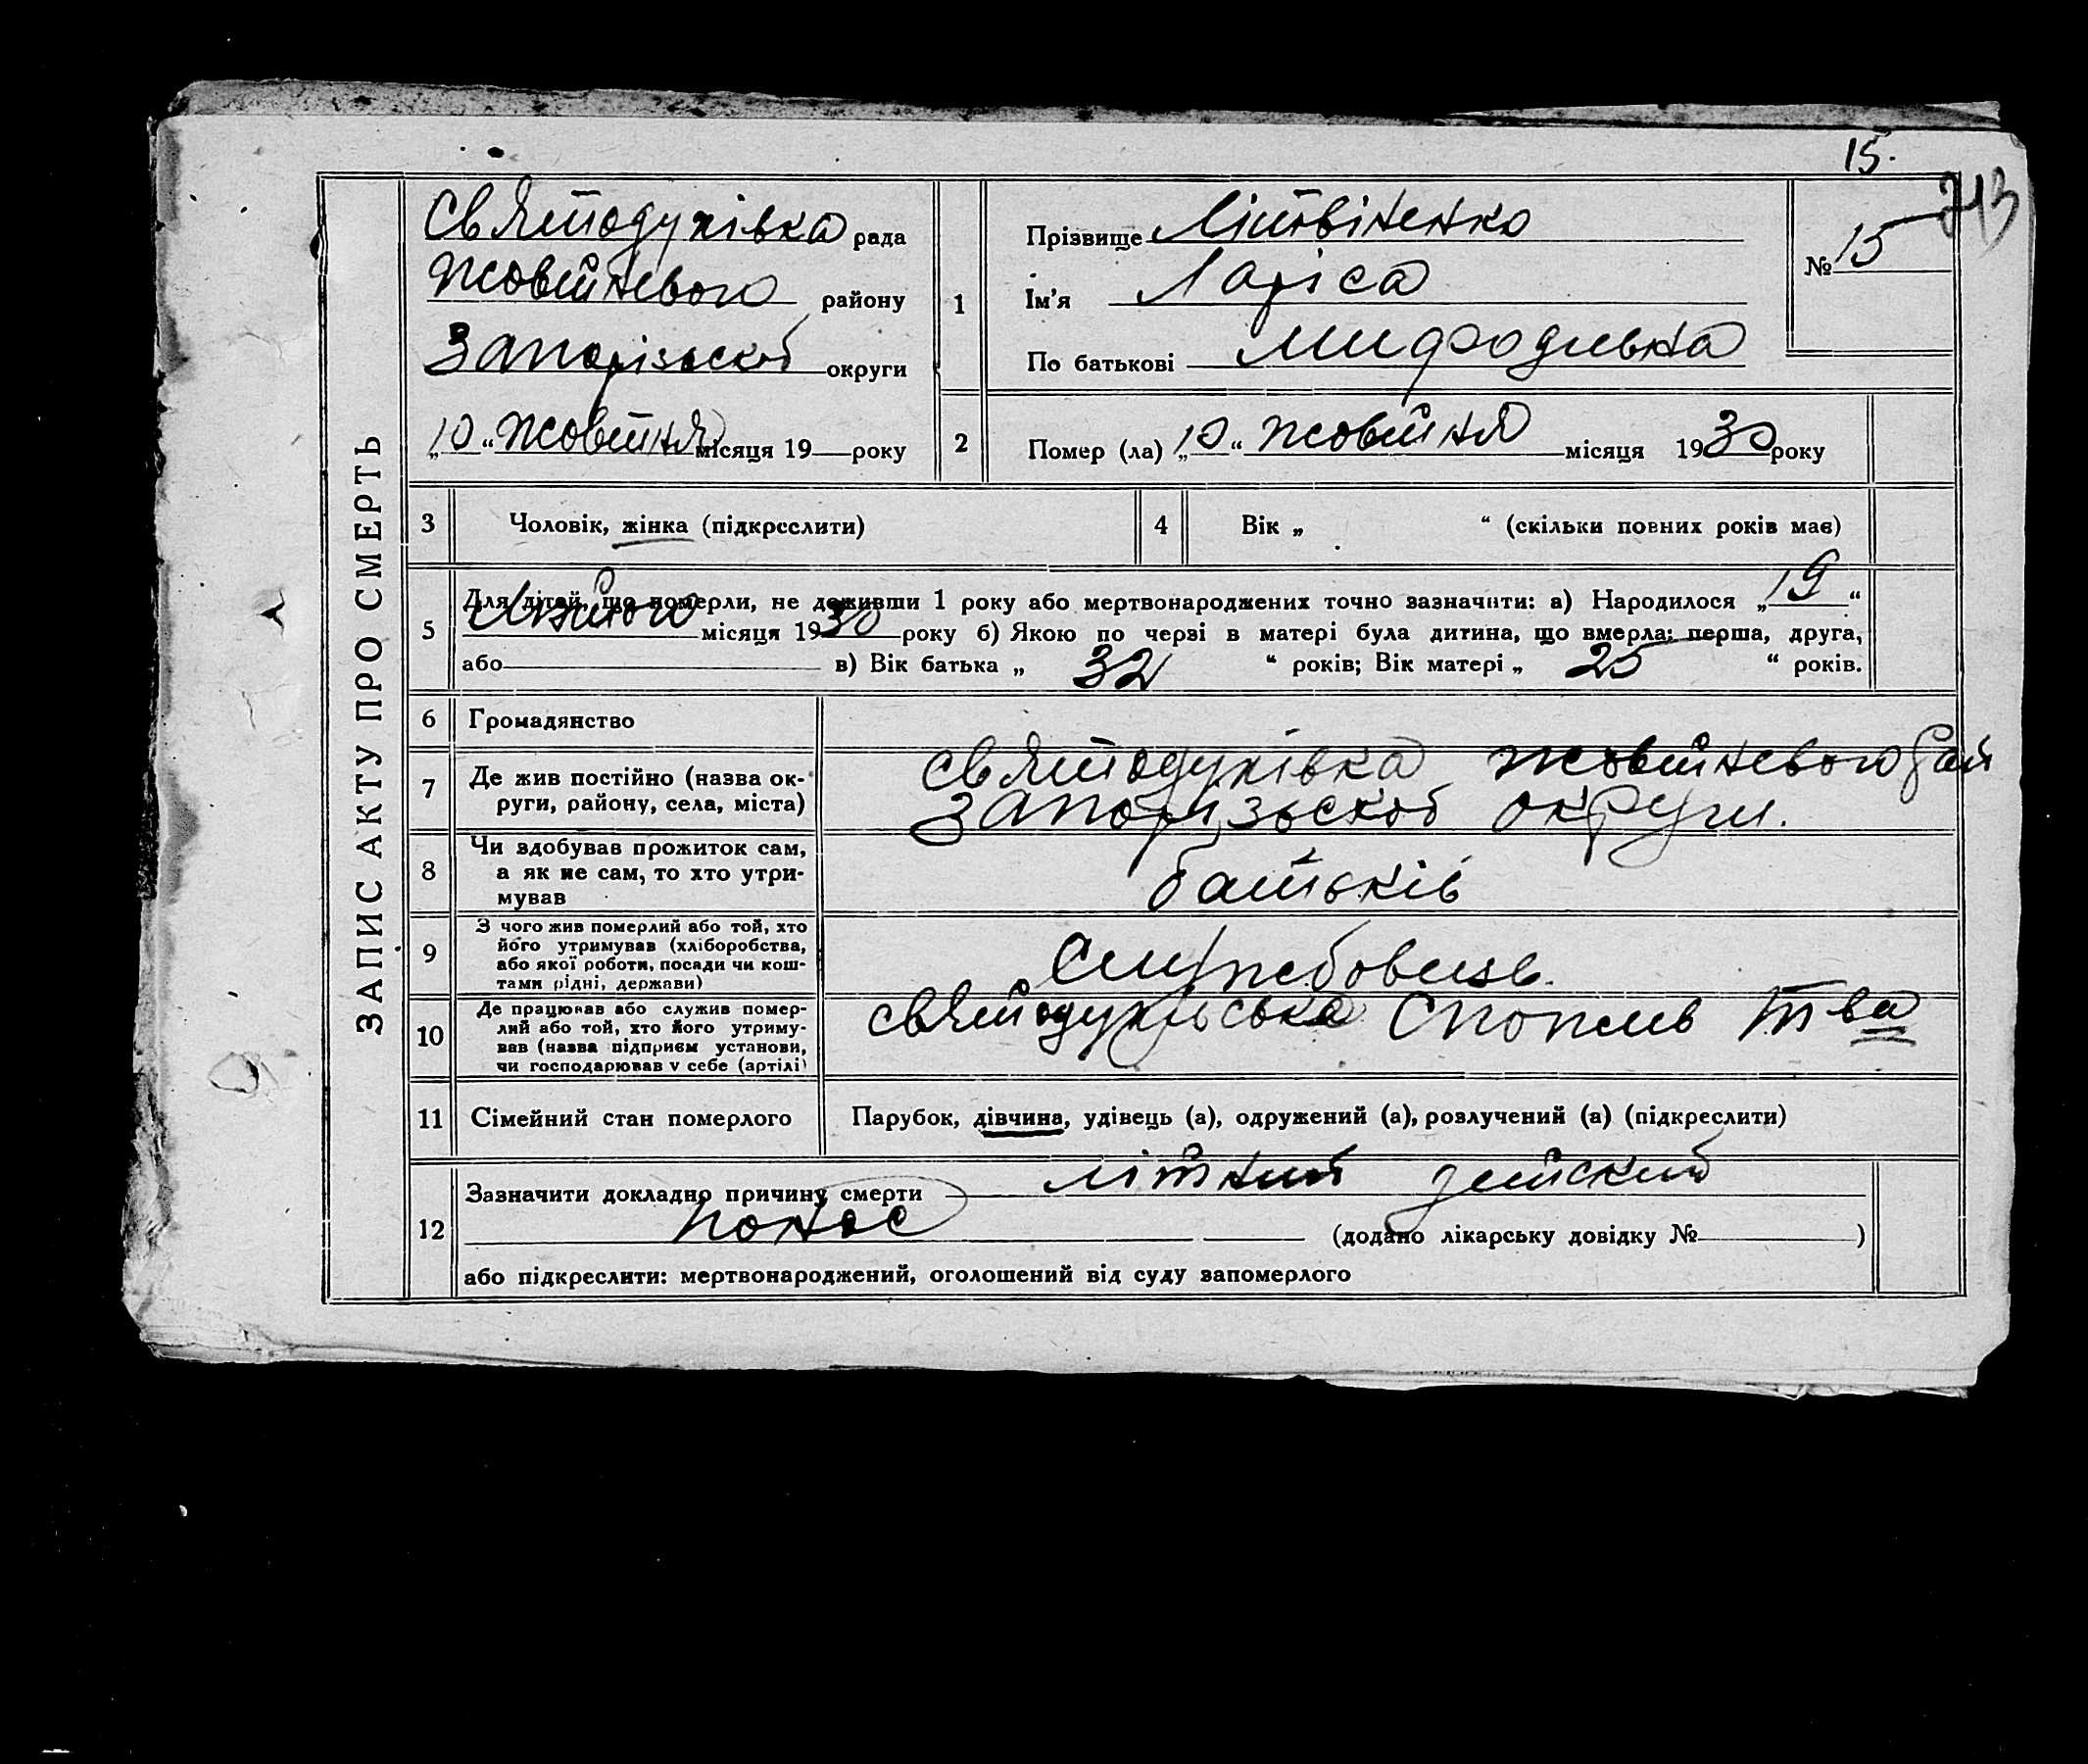 15.
713
ЗАПИС АКТУ ПРО СМЕРТЬ
Святодухівка рада
Жовтневого району
Запорізької округи
„10“ Жовтня місяця 19 року
1
Прізвище Літвіненко
Ім'яЛаріса
По батькові Мифодивна
№ 15
2
Помер (ла) „10“ Жовтня місяця 1930 року
3
Чоловік, жінка (підкреслити)
4
Вік „ “ (скільки повних років має)
5
Для дітей, що померли, не доживши 1 року або мертвонароджених точно зазначити: а) Народилося „19“
Лютого місяця 1930 року б) Якою по черзі в матері була дитина, що вмерла: перша, друга,
або в) Вік батька „ 32 “ років; Вік матері „ 25 “ років.
6
Громадянство
7
Де жив постійно (назва ок-
руги, району, села, міста)
Святодухівка Жовтневого рай
Запорізької округи.
8
Чи здобував прожиток сам,
а як не сам, то хто утри-
мував
батьків
9
З чого жив померлий або той, хто
його утримував (хліборобства,
або якої роботи, посади чи кош-
тами рідні, держави)
Службовець.
10
Де працював або служив помер-
лий або той, хто його утриму-
вав (назва підприєм установи,
чи господарював у себе (артілі)
Святодухівська Спожив Т ва
11
Сімейний стан померлого
Парубок, дівчина, удівець (а), одружений (а), розлучений (а) (підкреслити)
12
Зазначити докладно причину смерти літний
понос
(додано лікарську довідку № )
або підкреслити: мертвонароджений, оголошений від суду запомерлого